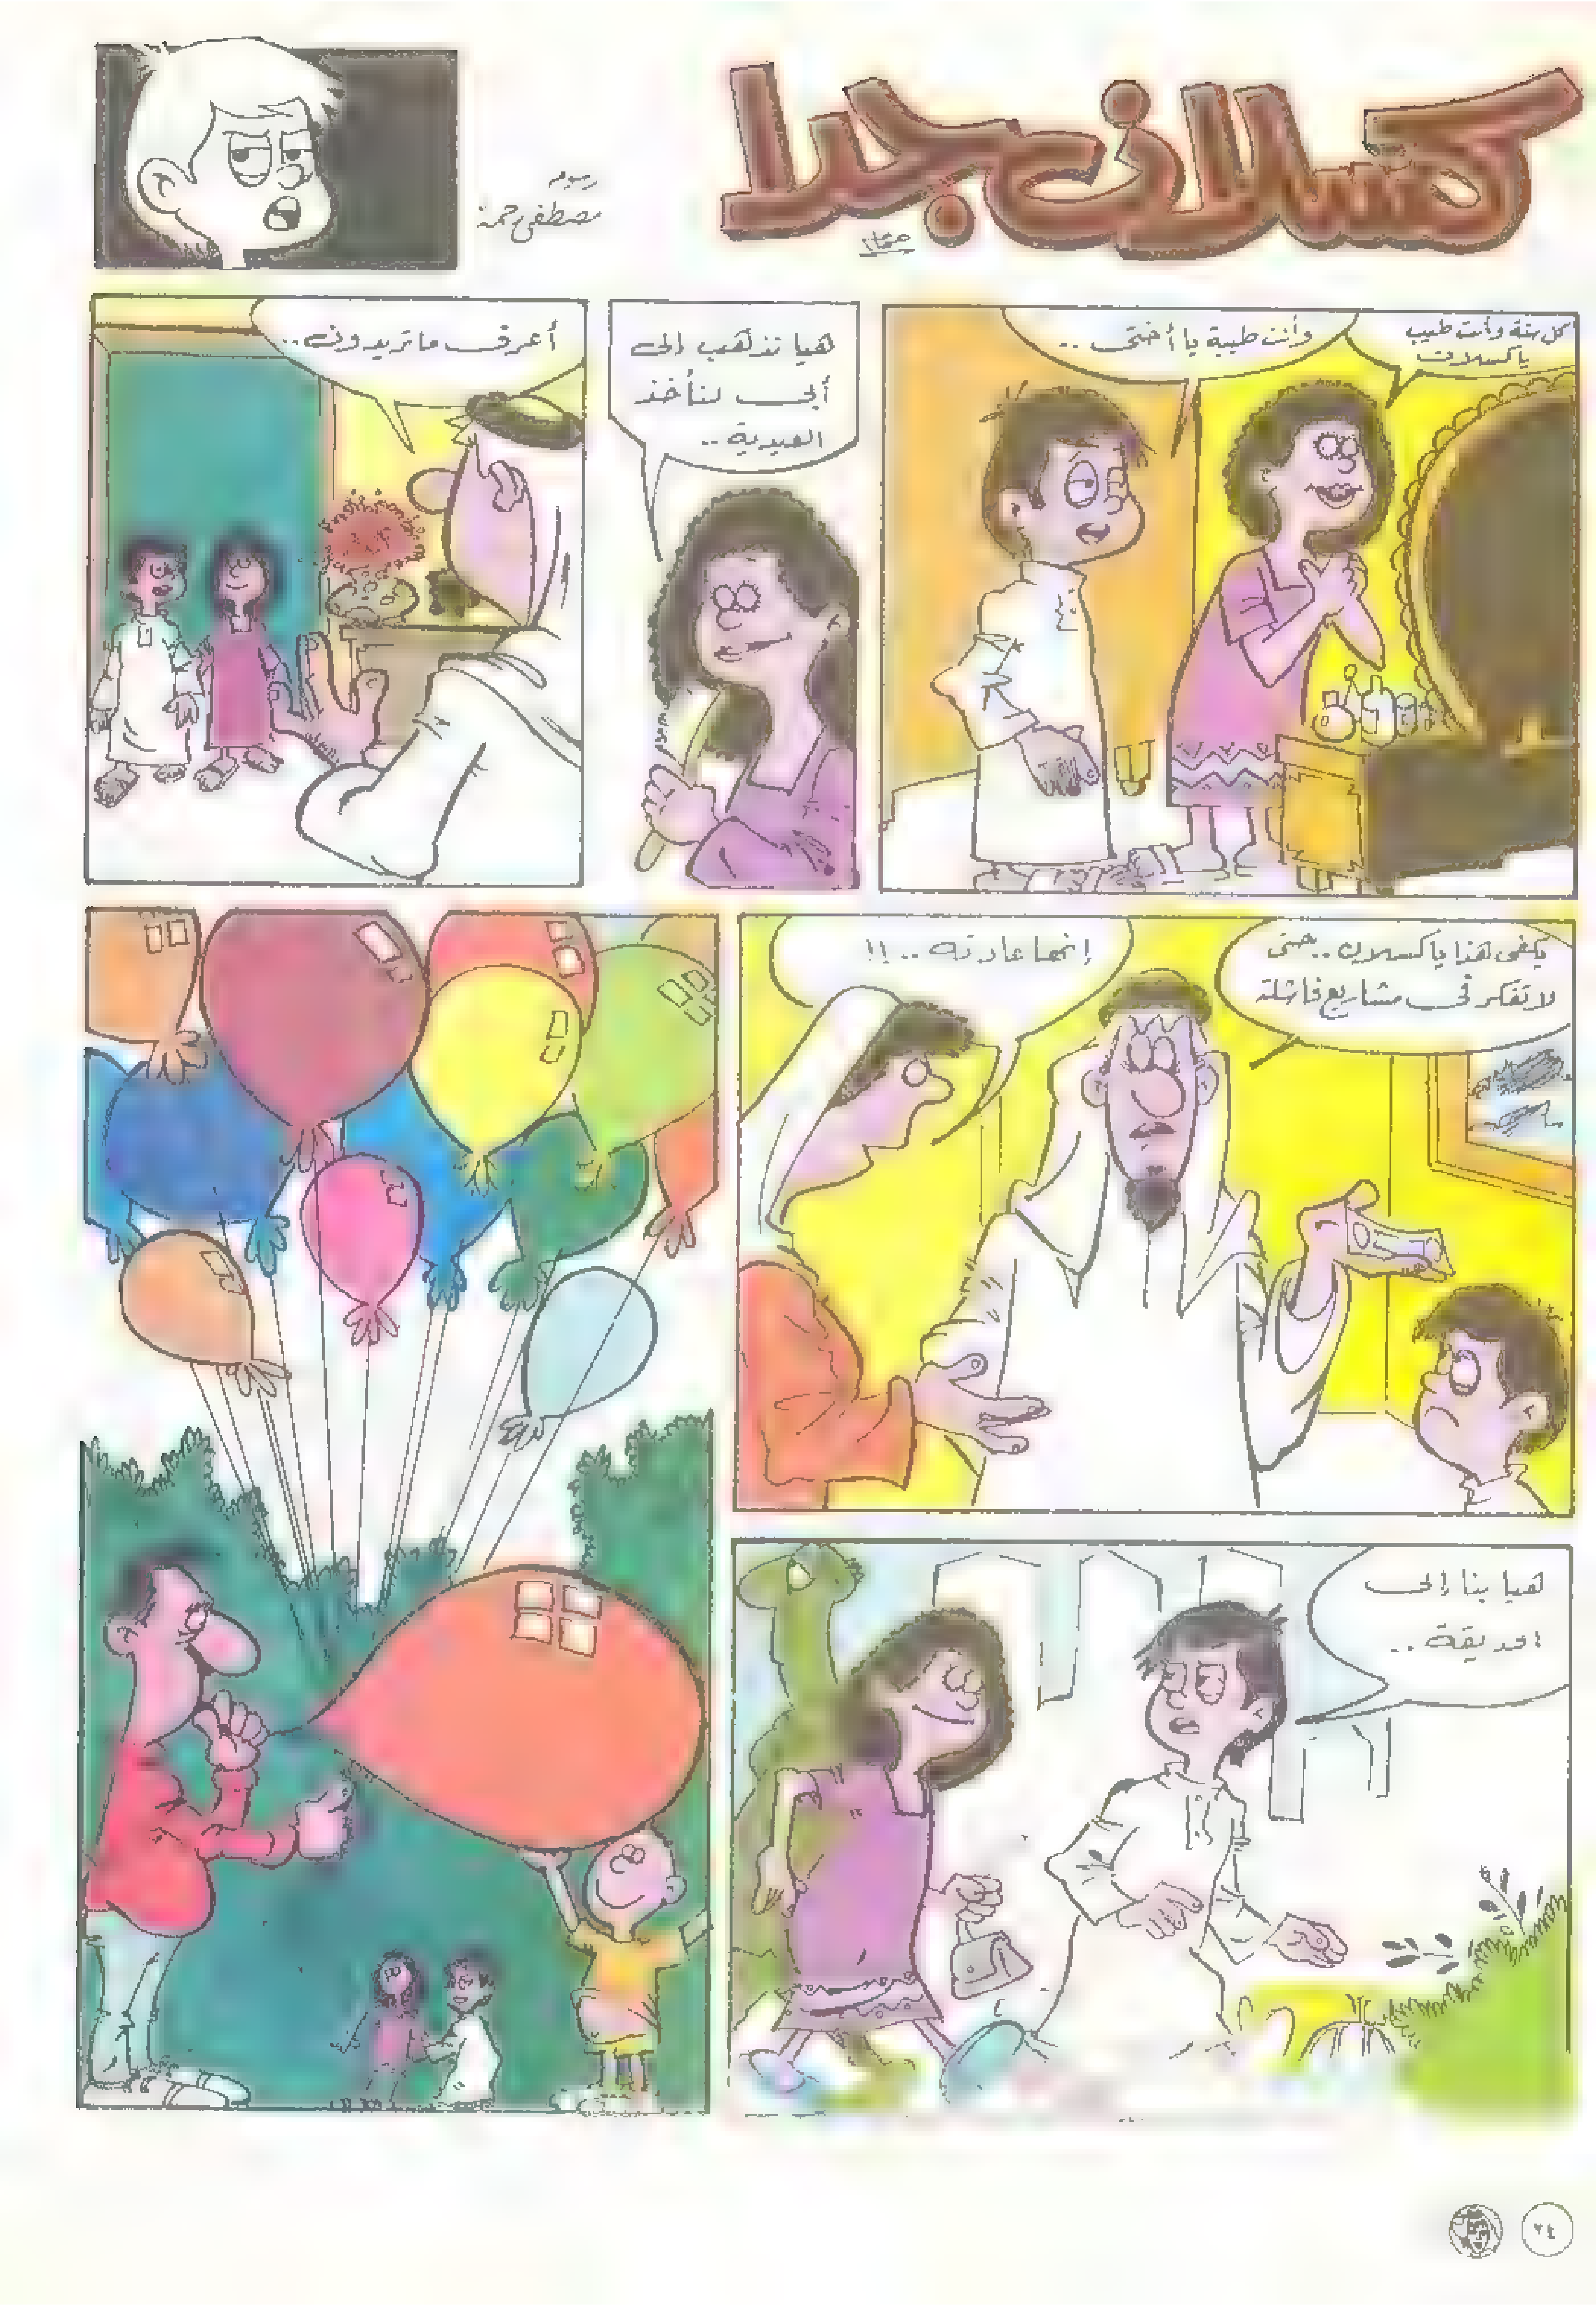 كسلان جدا
رسوم
مصطفى رحمة
كل سنة وأنت طيب
يا كسلان
وأنت طيبة يا أختى ..
هيا نذهب إلى
أبى لنأخذ
العيدية ..
أعرف ما تريدون ..
يكفى هذا يا كسلان .. حتى
لا تفكر فى مشاريع فاشلة
إنها عادته .. !!
هيا بنا إلى
الحديقة ..
٢٤